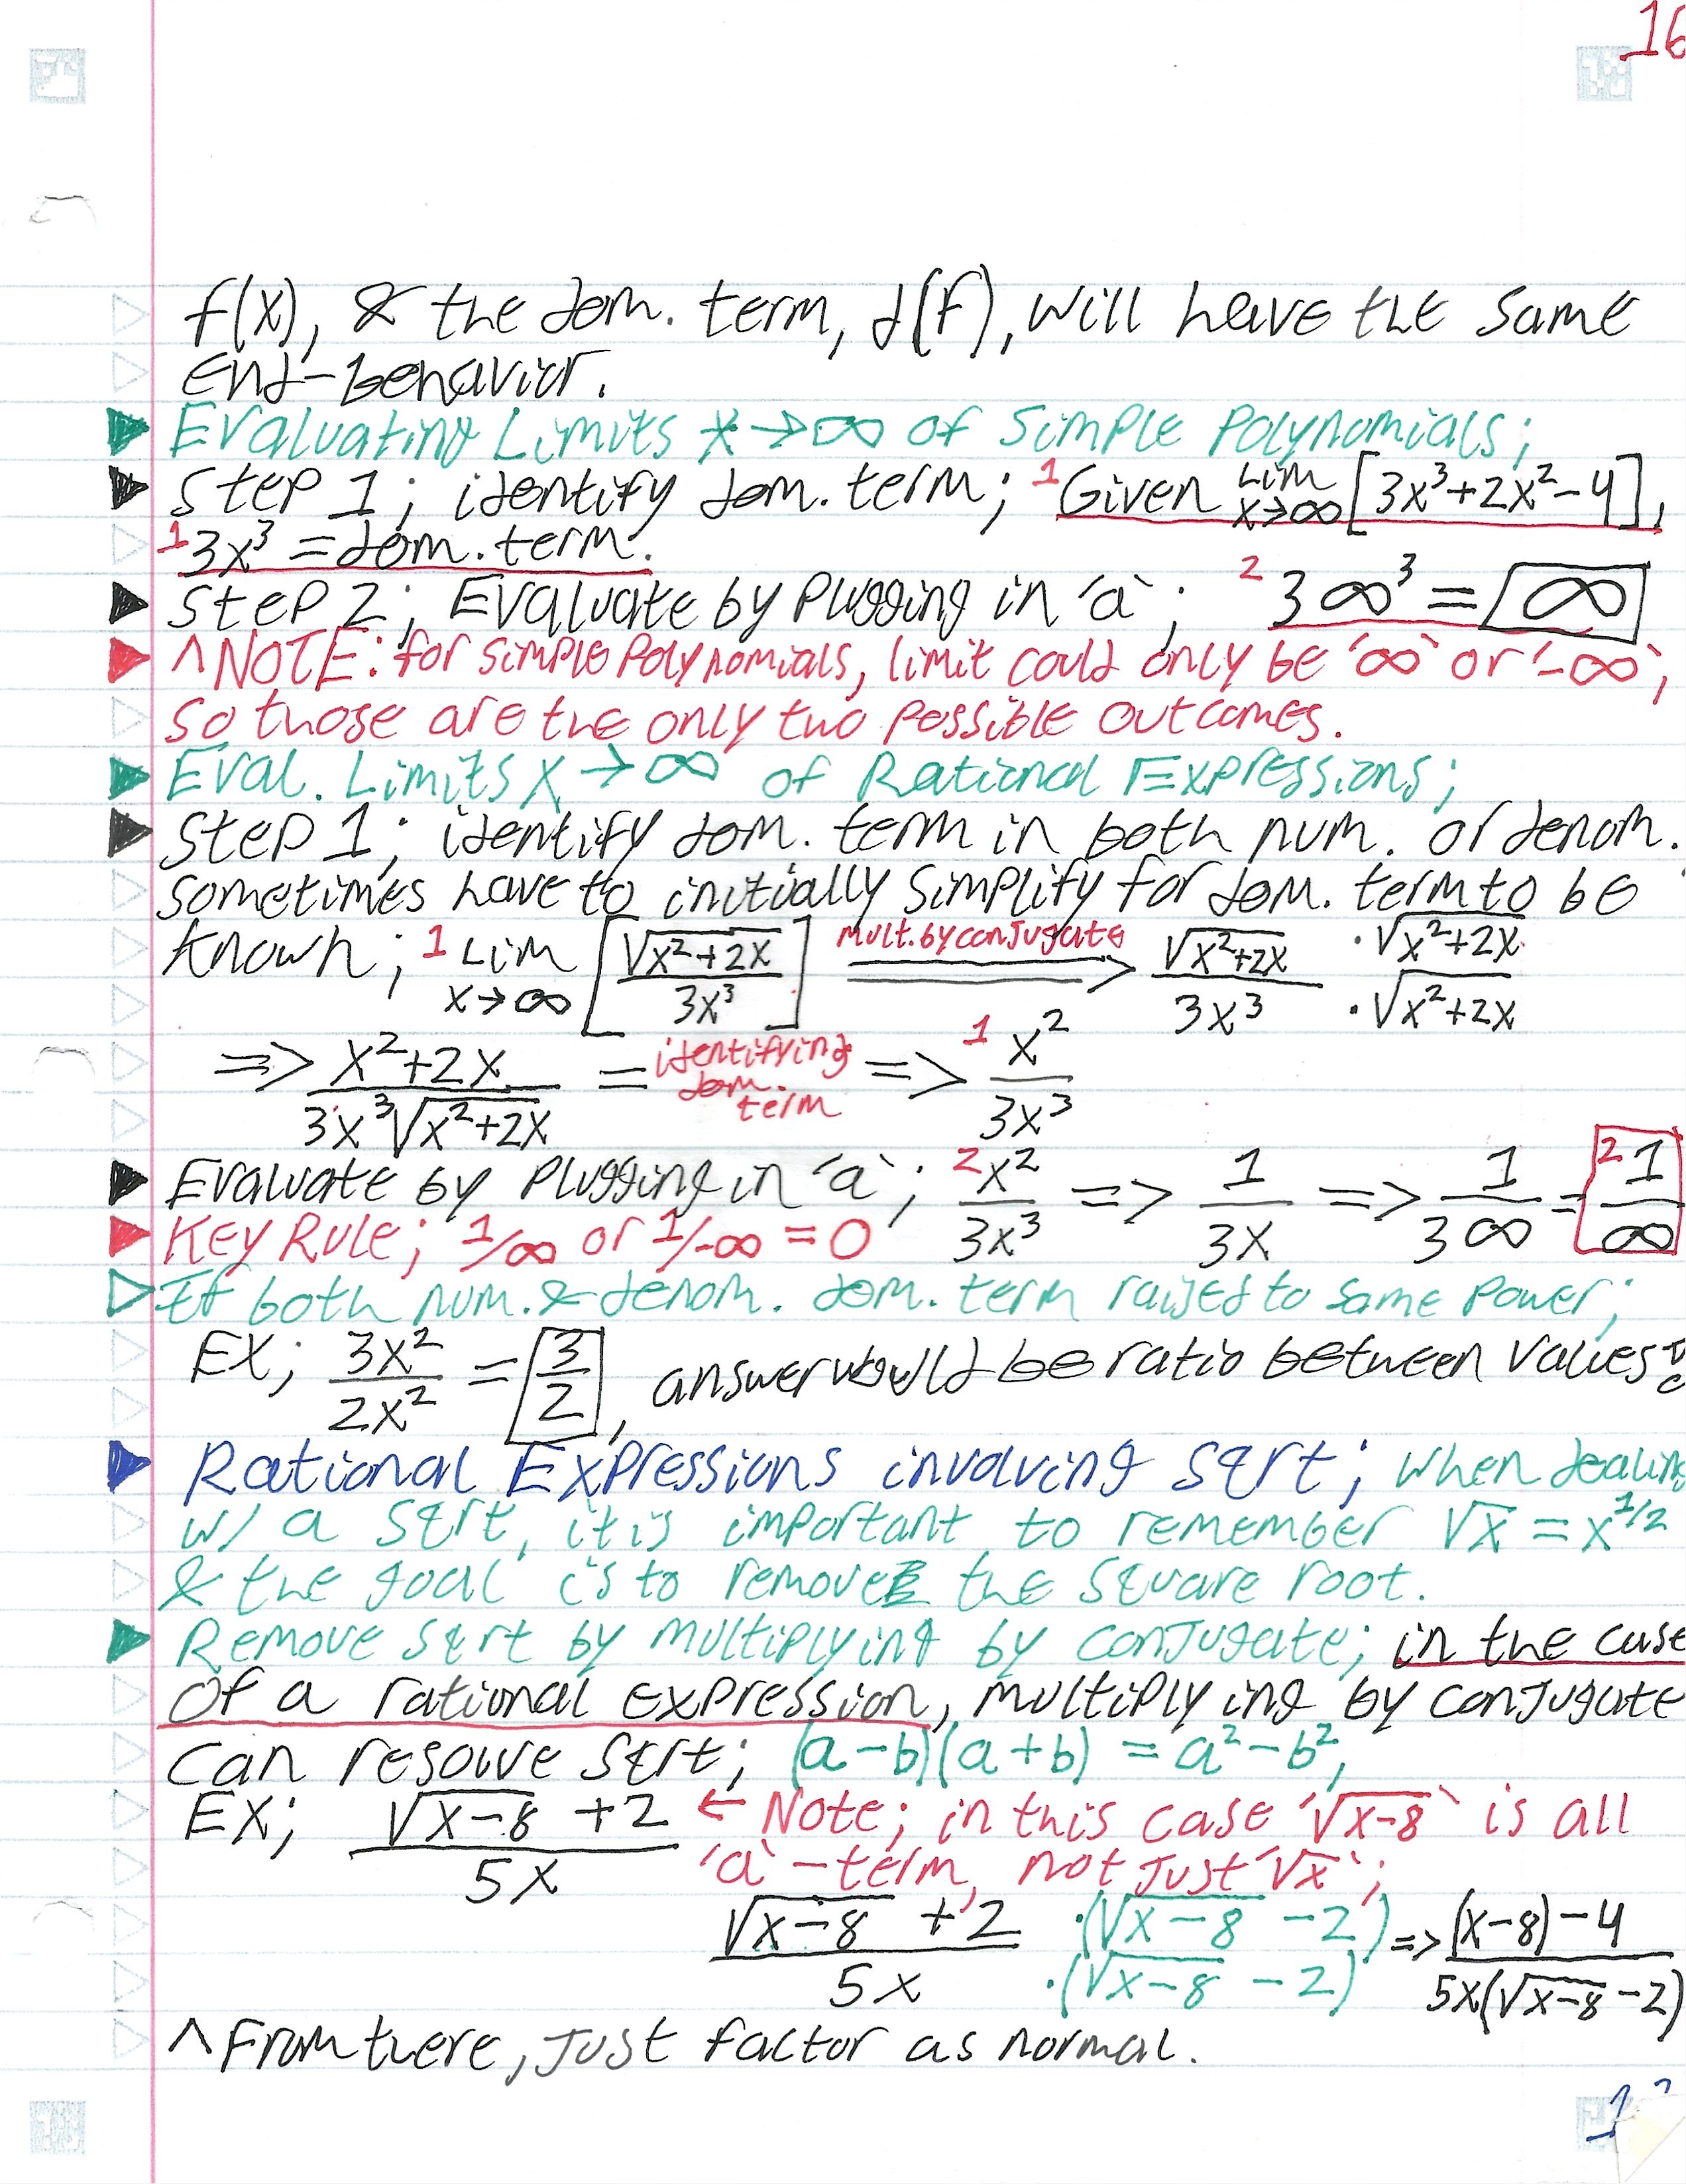 16
f(x), & the dom. term, d(f), will have the same
end-behavior.
Evaluating Limits x→∞ of Simple Polynomials;
Step 1; identify dom. term; ¹Given lim x→∞ [3x³+2x²-4],
¹3x³ = dom. term.
Step 2; Evaluate by plugging in 'a'; ² 3∞³ = ∞
^NOTE: for simple polynomials, limit could only be '∞' or '-∞',
so those are the only two possible outcomes.
Eval. Limits x→∞ of Rational Expressions;
Step 1; identify dom. term in both num. or denom.
sometimes have to initially simplify for dom. term to be
known; ¹ Lim x→∞ [√(x²+2x) / 3x³] mult. by conjugate => √(x²+2x) / 3x³ · √(x²+2x) / · √(x²+2x)
=> x²+2x / 3x³√(x²+2x) = identifying dom. term => ¹ x² / 3x³
Evaluate by plugging in 'a'; ² x² / 3x³ => 1 / 3x => 1 / 3∞ = ² 1 / ∞
Key Rule; 1/∞ or 1/-∞ = 0
If both num. & denom. dom. term raised to same power;
Ex; 3x² / 2x² = 3/2, answer would be ratio between values
Rational Expressions involving sqrt; when dealing
w/ a sqrt, it is important to remember √x = x^1/2
& the goal is to remove the square root.
Remove sqrt by multiplying by conjugate; in the case
of a rational expression, multiplying by conjugate
can resolve sqrt; (a-b)(a+b) = a²-b²,
Ex; √(x-8) +2 / 5x ← Note; in this case '√(x-8)' is all
'a'-term, not just '√x';
√(x-8) +2 / 5x · (√(x-8) -2) / · (√(x-8) -2) => (x-8)-4 / 5x(√(x-8) -2)
^From there, just factor as normal.